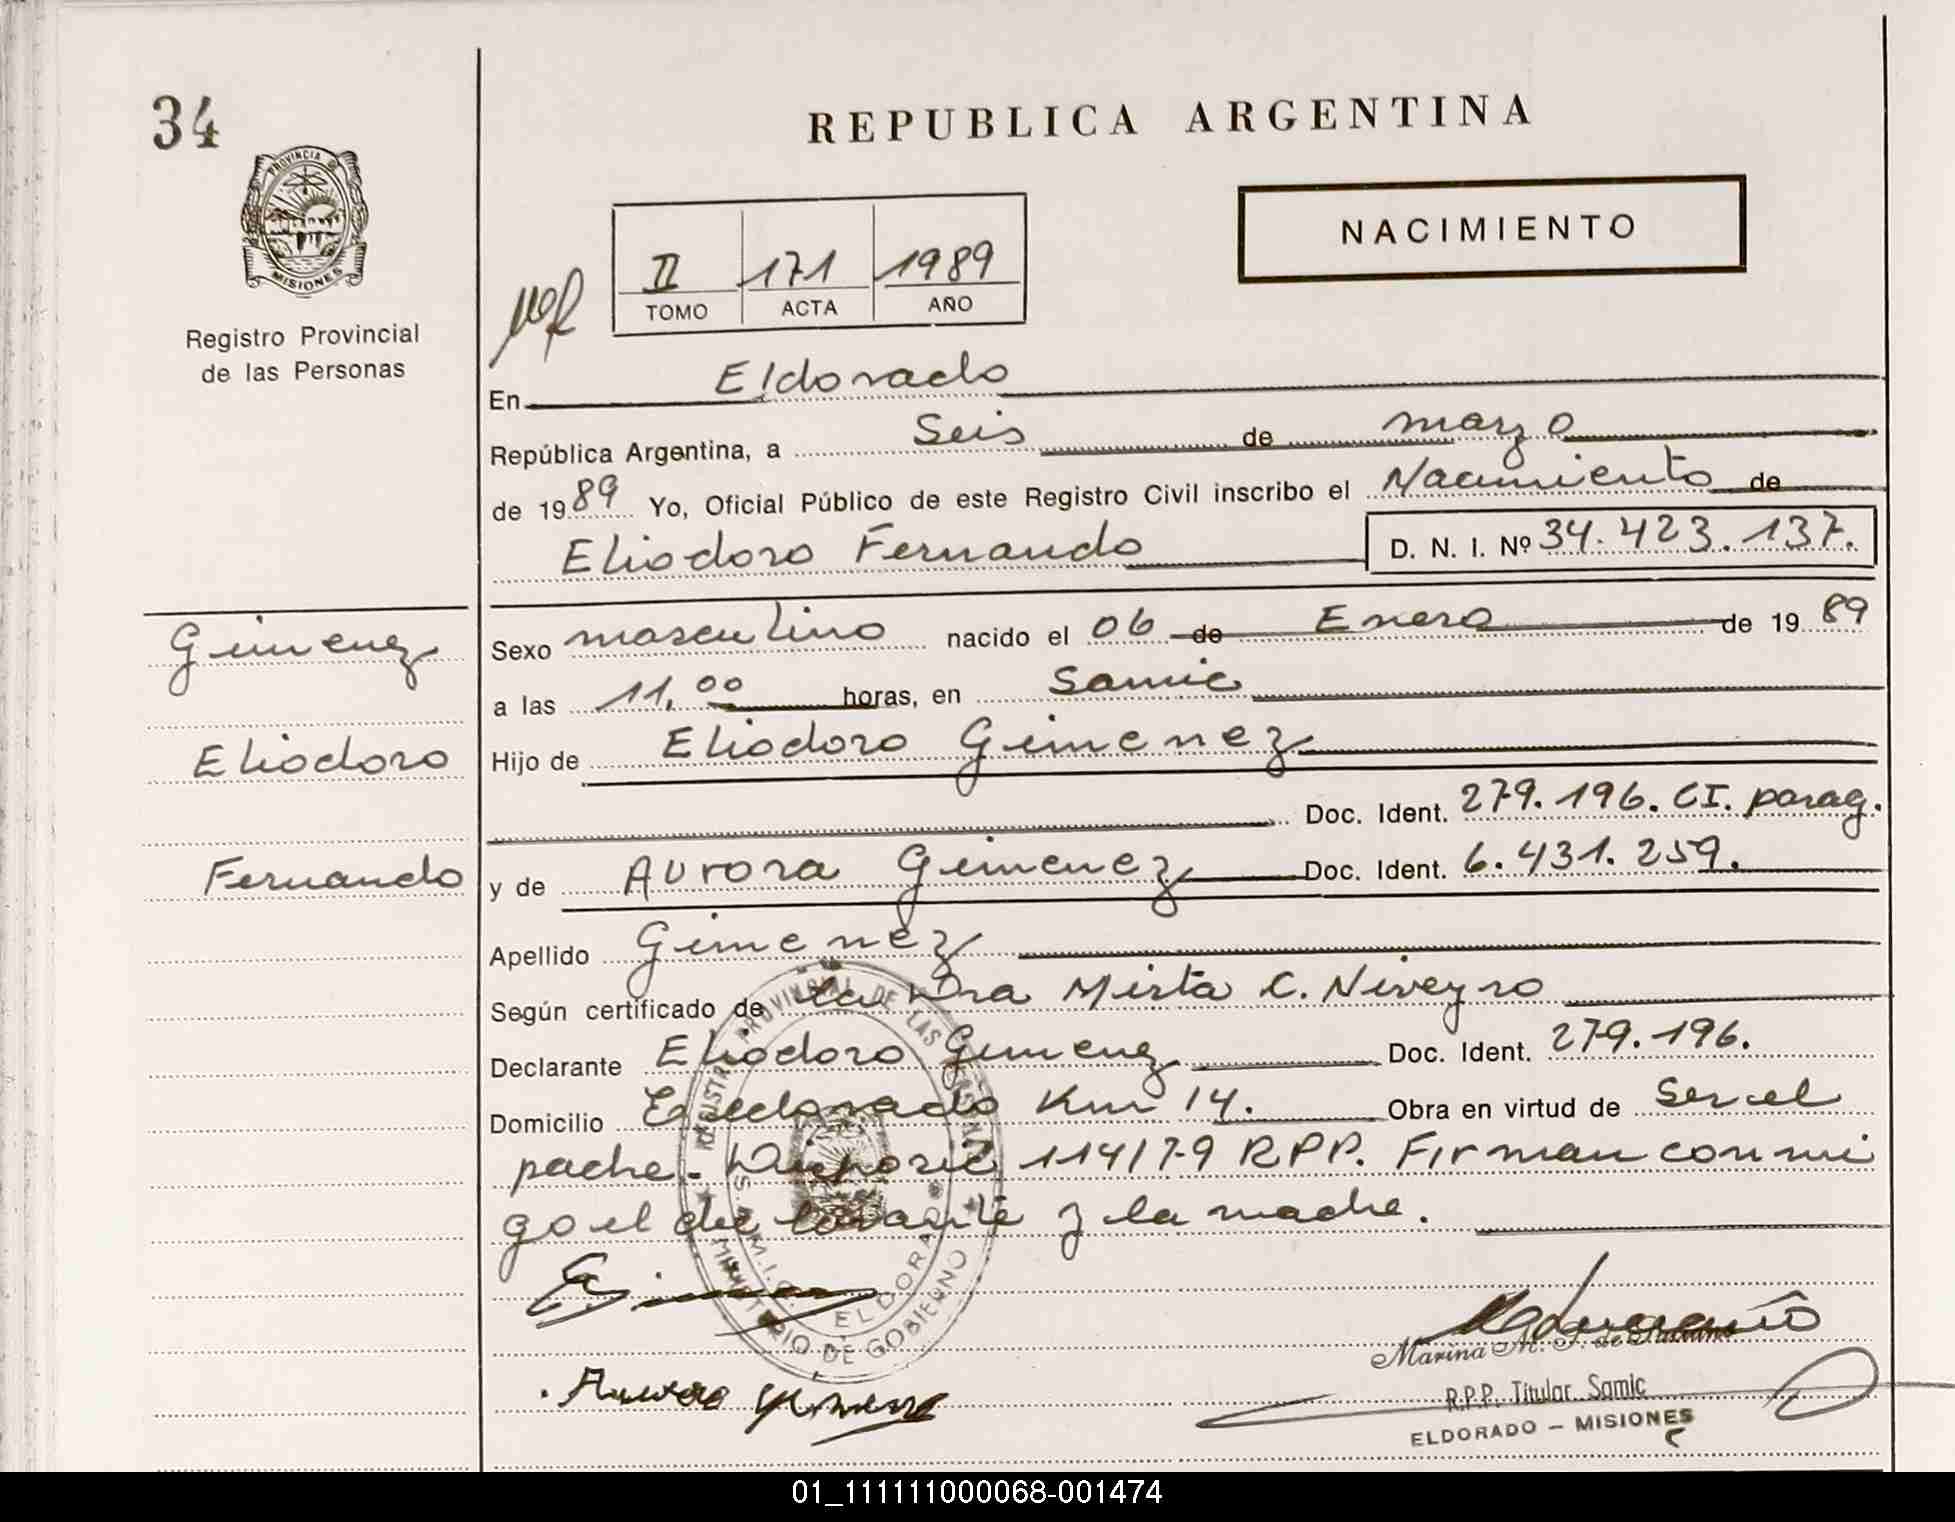 34
REPUBLICA ARGENTINA
PROVINCIA DE
MISIONES
NACIMIENTO
II 171 1989
TOMO ACTA AÑO
Registro Provincial
de las Personas
En Eldorado
República Argentina, a Seis de marzo
de 1989 Yo, Oficial Público de este Registro Civil inscribo el Nacimiento de
Eliodoro Fernando D. N. I. Nº 34.423.137.
Gimenez
Eliodoro
Fernando
Sexo masculino nacido el 06 de Enero de 1989
a las 11,00 horas, en Samic
Hijo de Eliodoro Gimenez
Doc. Ident. 279.196. CI. parag.
y de Aurora Gimenez Doc. Ident. 6.431.259.
Apellido Gimenez
Según certificado de la Dra Mirta C. Niveyro
Declarante Eliodoro Gimenez Doc. Ident. 279.196.
Domicilio Eldorado Km 14. Obra en virtud de Ser el
padre. Disposic 114/79 RPP. Firman conmi
go el declarante y la madre.
REGISTRO PROVINCIAL DE LAS PERSONAS
MINISTERIO DE GOBIERNO
S.A.M.I.C. ELDORADO
Aurora Gimenez
Marina M. F. de
R.P.P. Titular Samic
ELDORADO – MISIONES
01_111111000068-001474